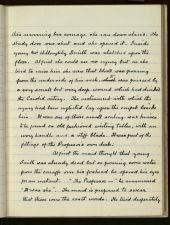 her nerves her courage she ran down stairs. The
study door was shut and she opened it. Inside
young Mr Willoughby Smith was stretched upon the
floor. At first she could see no injury but as she
tried to raise him she saw that blood was pouring
from the underside of his neck which was pierced by
a very small but very deep wound which had divided
the Carotid artery. The instrument with which the
injury had been inflicted lay upon the carpet beside
him. It was one of those small sealing-wax knives
to be found on old fashioned writing tables, with an
ivory handle and a stiff blade. It was part of the
fittings of the Professor's own desk.
At first the maid thought that young
Smith was already dead but on pouring some water
from the carafe over his forehead he opened his eyes
for an instant. "The Professor" he murmured
"It was she". The maid is prepared to swear
that those were the exact words. He tried desperately